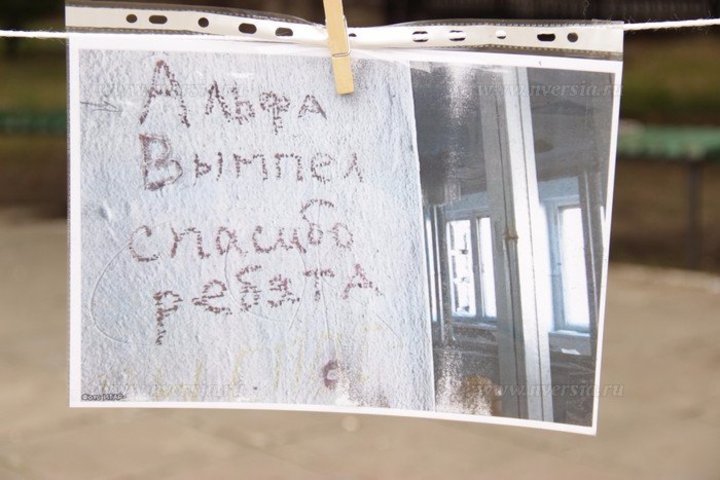 www.nversia.ru www.nversia.ru www.nversia.ru
Альфа
Вымпел
спасибо
ребята
www.nversia.ru